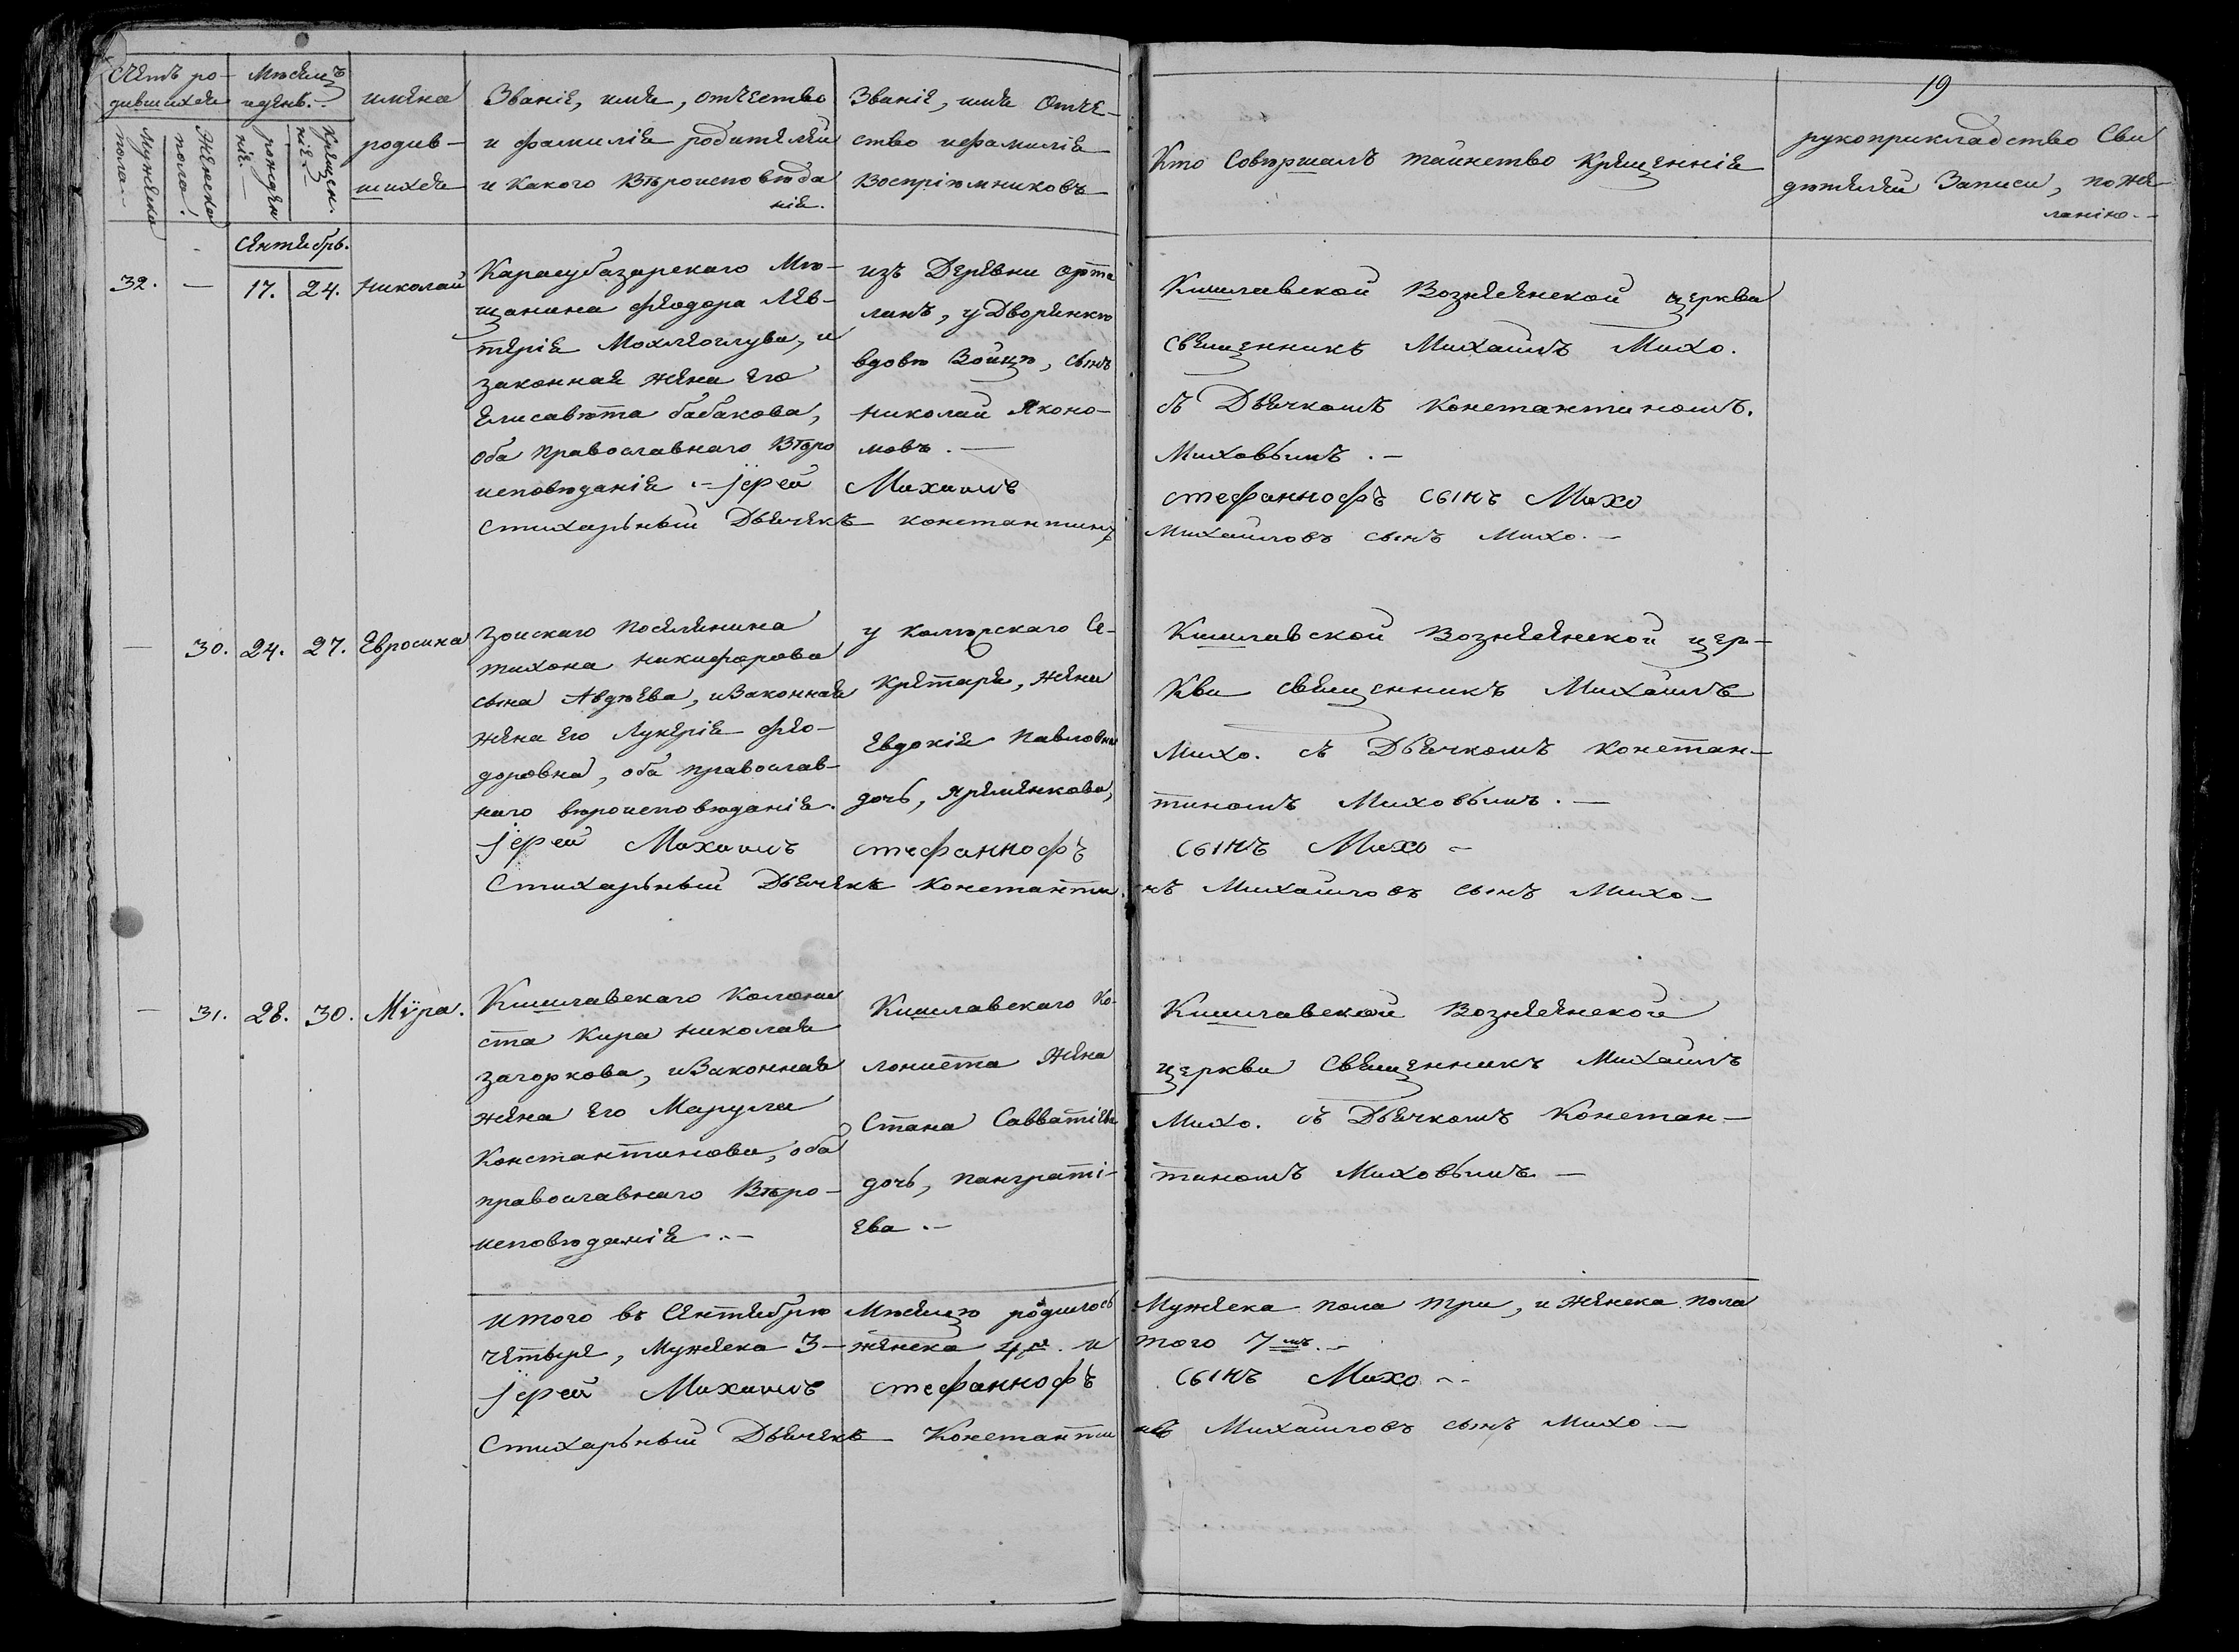 19
Счетъ ро-
дившихся
Мужеска
пола.
Женска
пола.
Мѣсяцъ
и день.
рожден
ніе.
Крещен.
ніе.
имена
родив-
шихся
Званіе, имя, отчество
и фамилія родителей
и какого Вѣроисповѣда
нія.
Званіе, имя Отче-
ство и фамилія
Воспріемниковъ
Кто Совершалъ таинство Крещеннія
рукоприкладство Сви
дѣтелей Записи, по же
ланію.
Сентябрь.
32. — 17. 24. Николай
Карасубазарскаго Мѣ-
щанина Феодора Лев-
терія Мохлеоглува, и
законная жена его
Елисавета бабакова,
оба православнаго Вѣро
исповѣданія. Іерей
Стихарьный Дьячекъ
изъ Деревни орта
ланъ, у Дворянкѣ
вдовѣ Войцѣ, сынъ
Николай Яконо-
мовъ.
Михаилъ
константинъ
Кишлавской Вознесенской церкви
священникъ Михаилъ Михо.
съ Дьячкомъ Константиномъ.
Миховымъ.
стефаннофъ сынъ Михо
Михаиловъ сынъ Михо.
— 30. 24. 27. Евросина
Зоискаго поселянина
тихона никифорова
сына Авдѣева, и законная
жена его Лукерія Фео-
доровна, оба православ-
наго вѣроисповѣданія.
Іерей Михаилъ
Стихарьный Дьячекъ
у Се-
кретаря, жены
Евдокія Павловны
дочь, Яременкова,
стефаннофъ
константи
Кишлавской Вознесенской цер-
кви священникъ Михаилъ
Михо. съ Дьячкомъ констан-
тиномъ Миховымъ.
сынъ Михо
нъ Михаиловъ сынъ Михо
— 31. 28. 30. Мѵра.
Кишлавскаго Колони
ста Кира николая
загоркова, и Законная
жена его Марули
Константинова, оба
православнаго Вѣро-
исповѣданія.
Кишлавскаго ко-
лониста жена
Стана Савватіева
дочь, панграті-
ева.
Кишлавской Вознесенской
церкви Священникъ Михаилъ
Михо. съ Дьячкомъ Констан-
тиномъ Миховымъ
итого въ Сентябрѣ Мѣсяцѣ родилось Мужеска пола три, и женска пола
четыре, Мужеска 3 — женска 4ре. и того 7мъ.
Іерей Михаилъ стефаннофъ сынъ Михо
Стихарьный Дьячекъ Константинъ Михаиловъ сынъ Михо